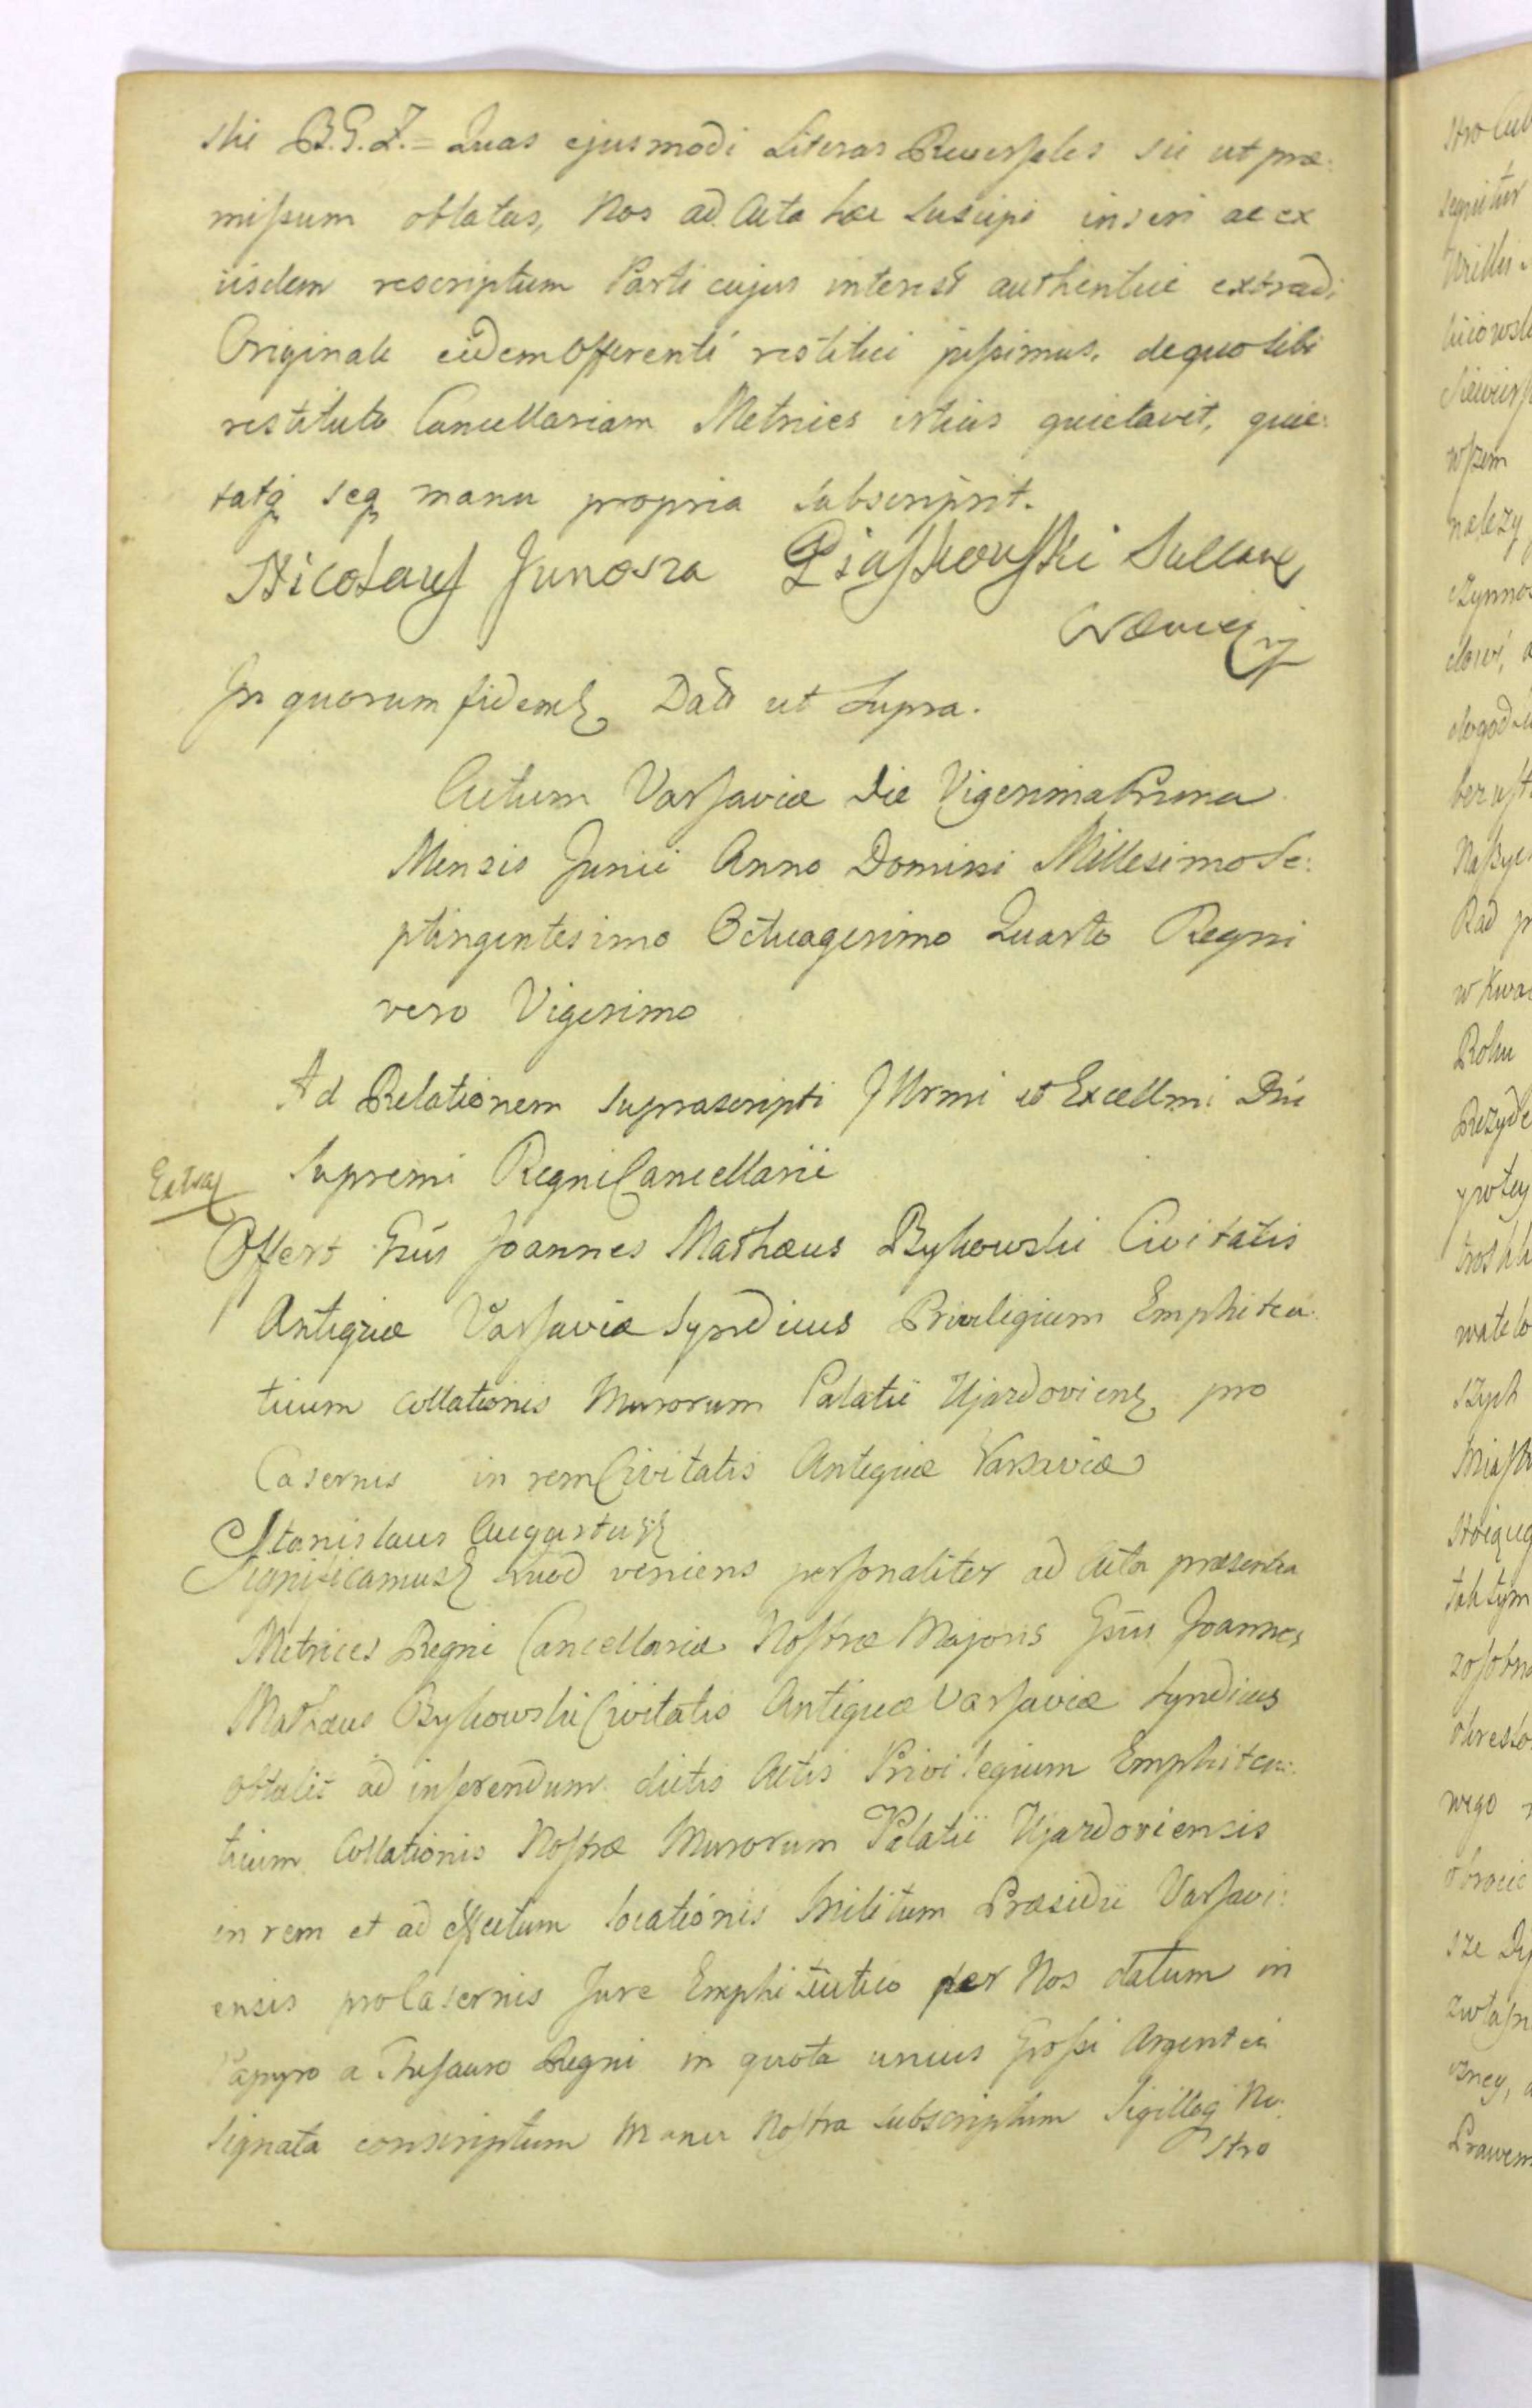 ski B.G.Z. = Quas ejusmodi Literas Reversales sic ut præ:
mißum oblatas, Nos ad Acta hæc suscipi inseri ac ex
iisdem rescriptum Parti cujus interest authentice extradi
Originale eidem Offerenti restitui jußimus, de quo sibi
restituto Cancellariam Metrices istius quietavit, quie:
tatq seq manu propria subscripsit.
Nicolaus Junosza Piaskowski Succam
Cræmenecen
In quorum fidem Datt ut supra.
Actum Varsaviæ Die Vigesima Prima
Mensis Junii Anno Domini Millesimo Se:
ptingentesimo Octuagesimo Quarto Regni
vero Vigesimo
Ad Relationem suprascripti Illrmi et Excellmi Dni
Supremi Regni Cancellarii
Extrad
Offert Gsūs Joannes Mathæus Bykowski Civitatis
Antiquæ Varsaviæ Syndicus Privilegium Emphiteu:
ticum collationis Murorum Palatii Ujazdoviens pro
Casernis in rem Civitatis Antiquæ Varsaviæ
Stanislaus Augustus
Significamus Quod veniens personaliter ad Acta præsentia
Metrices Regni Cancellariæ Nostræ Majoris Gsūs Joannes
Mathæus Bykowski Civitatis Antiquæ Varsaviæ Syndicus
obtulit ad inserendum dictis Actis Privilegium Emphiteu:
ticum Collationis Nostræ Murorum Palatii Ujazdoviensis
in rem et ad effectum locationis Militum Præsidii Varsavi:
ensis pro Casernis Jure Emphiteutico per Nos datum in
Papyro a Thesauro Regni in quota unius Großi Argentei
signata conscriptum Manu Nostra subscriptum Sigilloq No:
stro